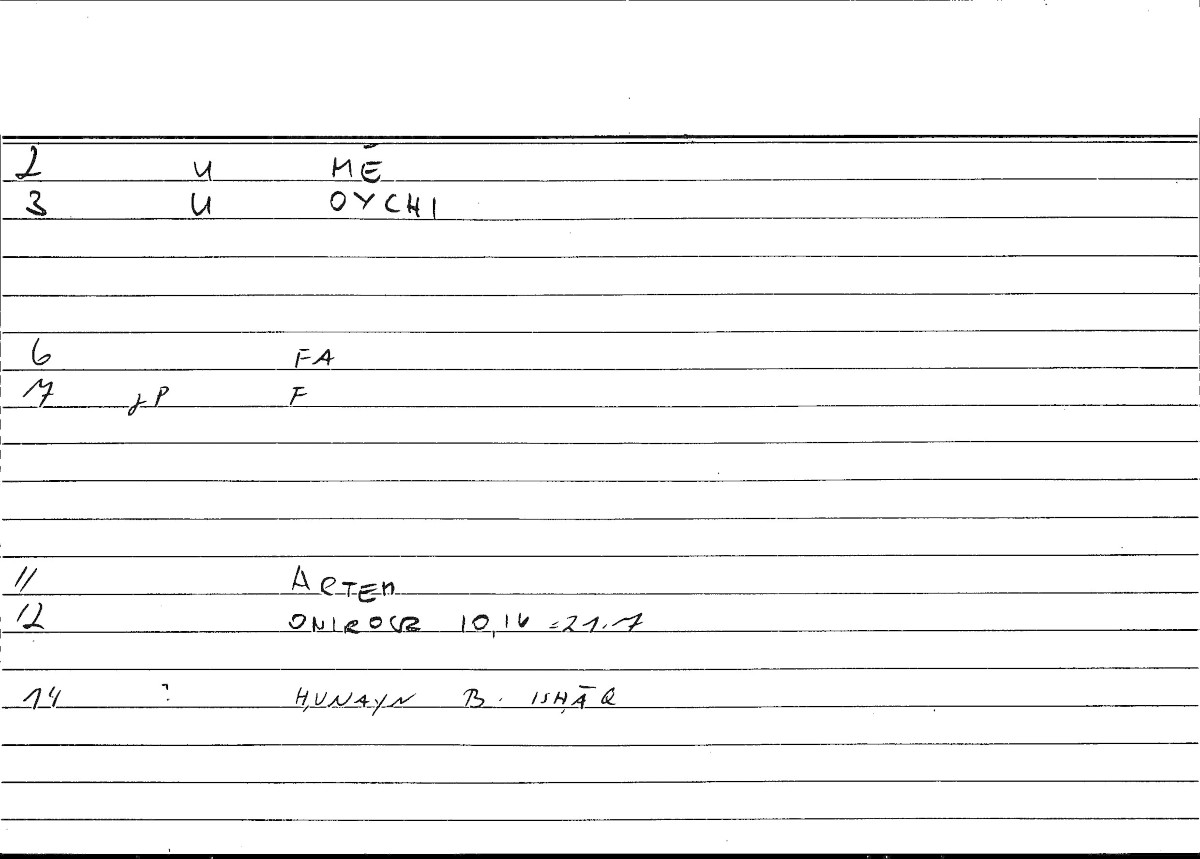 2 U MĒ
3 U OYCHI
6 FA
7 P F
11 ARTEM
12 ONIROCR 10,14 = 21.7
14 ? ḤUNAYN B. ISḤĀQ